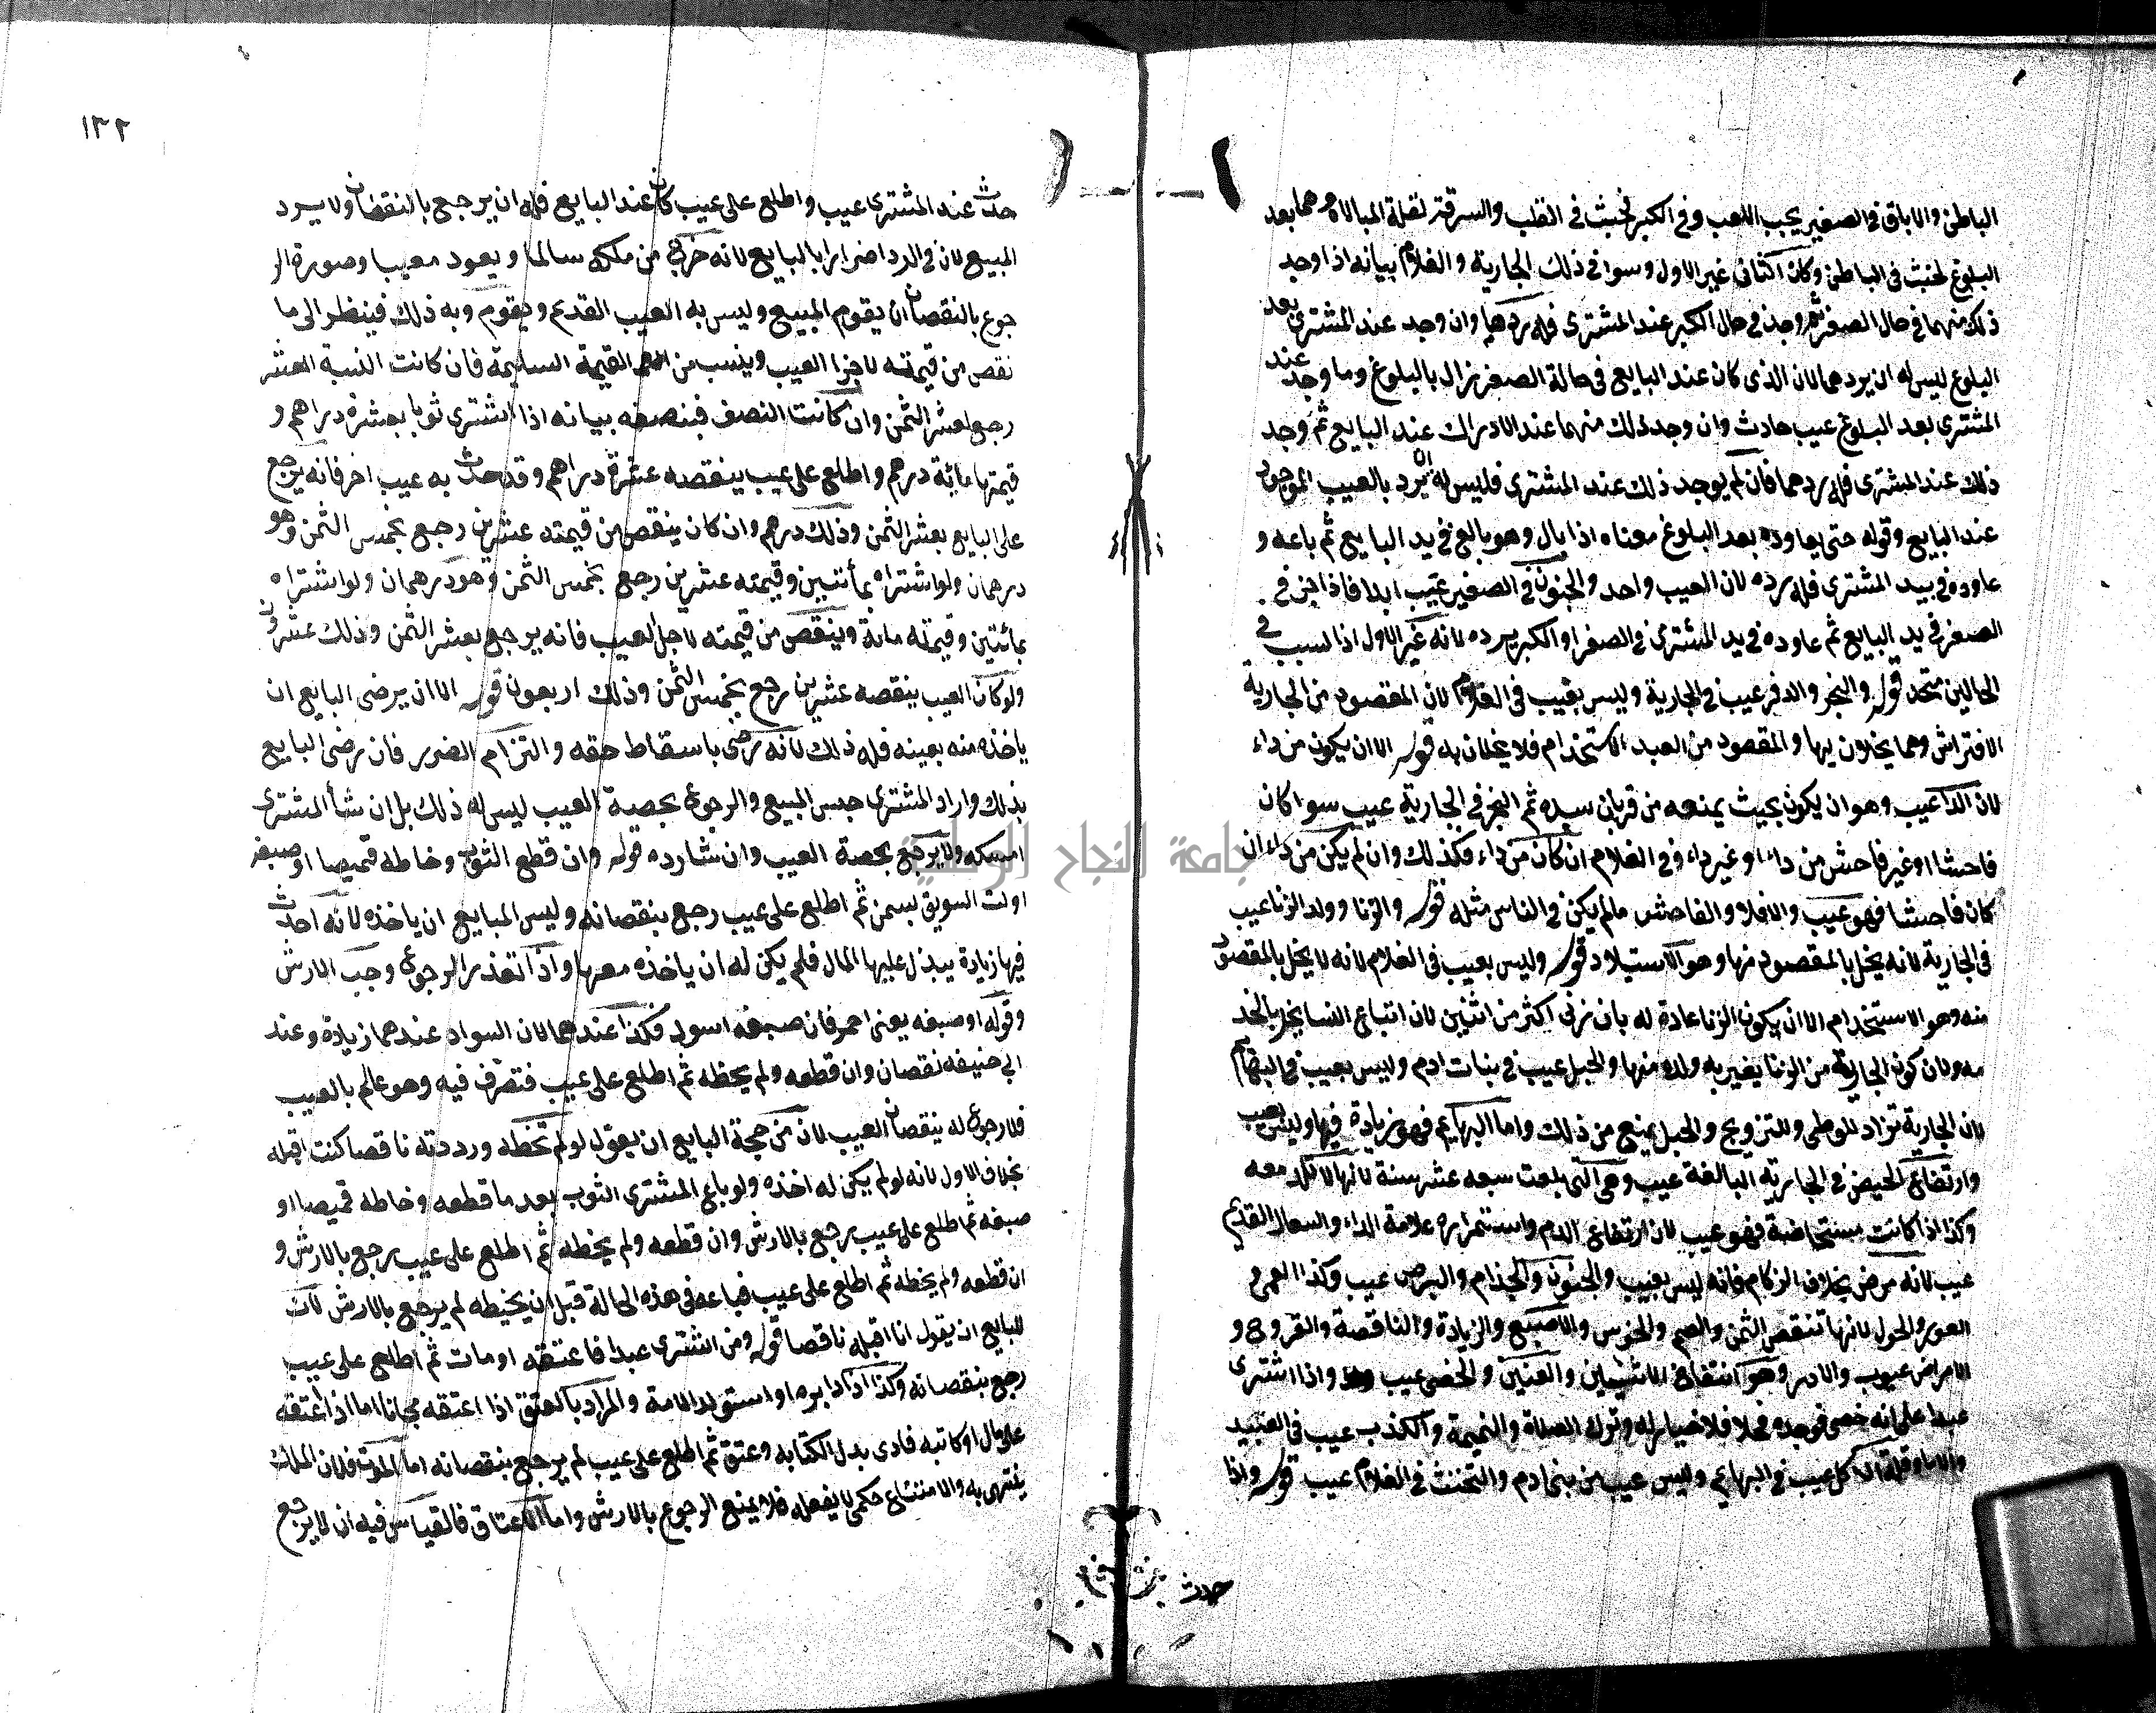 الباطن والاباق في الصغير يجب اللعب وفي الكبر لخبث في القلب والسرقة لقلة المبالاة وهما بعد
البلوغ لخبث في الباطن وكان الثاني غير الاول وسوا في ذلك الجارية والغلام بيانه اذا وجد
ذلك منهما في حال الصغر ثم وجد في حال الكبر عند المشتري فله ردها وان وجد عند المشتري بعد
البلوغ ليس له ان يردهما لان الذي كان عند البايع في حالة الصغر زال بالبلوغ وما وجد عند
المشتري بعد البلوغ عيب حادث وان وجد ذلك منهما عند الادراك عند البايع ثم وجد
ذلك عند المشتري فله ردهما فان لم يوجد ذلك عند المشتري فليس له ان يرد بالعيب الموجود
عند البايع وقوله حتى يعاوده بعد البلوغ معناه اذا بال وهو بالغ في يد البايع ثم باعه و
عاوده في يد المشتري فله رده لان العيب واحد والجنون في الصغير عيب ابدا فاذا جن في
الصغر في يد البايع ثم عاوده في يد المشتري في الصغر او الكبر يرده لانه غير الاول اذ السبب في
الحالين متحد قوله والبخر والدفر عيب في الجارية وليس بعيب في الغلام لان المقصود من الجارية
الافتراش وهما يخلان بها والمقصود من العبد الاستخدام فلا يخلان به قوله الا ان يكون من داء
لان الداء عيب وهو ان يكون بحيث يمنعه من قربان سيده ثم البخر في الجارية عيب سوا كان
فاحشا او غير فاحش من داء او غير داء وفي الغلام ان كان من داء فكذلك وان لم يكن من داء ان
كان فاحشا فهو عيب والا فلا والفاحش مالم يكن في الناس مثله قوله والزنا وولد الزنا عيب
في الجارية لانه يخل بالمقصود منها وهو الاستيلاد قوله وليس بعيب في الغلام لانه لا يخل بالمقصود
منه وهو الاستخدام الا ان يكون الزنا عادة له بان زنى اكثر من اثنين لان اتباع النسا يخل بالخد
مه ولان كون الجارية من الزنا يعير به ولده منها والحبل عيب في بنات ادم وليس بعيب في البهايم
لان الجارية تراد للوطى وللتزويج والحبل يمنع من ذلك واما البهايم فهو زيادة فيها وليس بعيب
وارتفاع الحيض في الجارية البالغة عيب وهي التي بلغت سبعه عشر سنة لانها لا تلد معه
وكذا اذا كانت مستحاضة فهو عيب لان ارتفاع الدم واستمراره علامة الداء والسعال القديم
عيب لانه مرض بخلاف الزكام فانه ليس بعيب والجنون والجذام والبرص عيب وكذا العمى و
العور والحول لانها تنقص الثمن والصم والخرس والاصبع والزيادة والناقصة والقروح و
الامراض عيوب والادر وهو انتفاخ الانثيين والعنين والخصي عيب واذا اشترى
عبدا على انه خصي فوجده فحلا فلا خيار له وترك الصلاة والنميمة والكذب عيب في العبيد
والاما وقلة الاكل عيب في البهايم وليس عيب من بني ادم والتخنث في الغلام عيب قوله واذا
حدث
١٣٢
حدث عند المشتري عيب واطلع على عيب كان عند البايع فله ان يرجع بالنقصان ولا يرد
المبيع لان في الرد اضرارا بالبايع لانه خرج من ملكه سالما ويعود معيبا وصورة الر
جوع بالنقصان ان يقوم المبيع وليس به العيب القديم ويقوم وبه ذلك فينظر الى ما
نقص من قيمته لاجل العيب وينسب من القيمة السليمة فان كانت النسبة العشر
رجع بعشر الثمن وان كانت النصف فبنصفه بيانه اذا اشترى ثوبا بعشرة دراهم و
قيمتها مائة درهم واطلع على عيب ينقصه عشرة دراهم وقد حدث به عيب اخر فانه يرجع
على البايع بعشر الثمن وذلك درهم وان كان ينقص من قيمته عشرين رجع بخمس الثمن وهو
درهمان ولو اشتراه بمائتين وقيمته عشرين رجع بخمس الثمن وهو درهمان ولو اشتراه
بمائتين وقيمته مائة وينقص من قيمته لاجل العيب فانه يرجع بعشر الثمن وذلك عشرون
ولو كان العيب ينقصه عشرين رجع بخمس الثمن وذلك اربعون قوله الا ان يرضى البايع ان
ياخذه منه بعينه فله ذلك لانه رضى باسقاط حقه والتزام الضرر فان رضى البايع
بذلك واراد المشتري حبس المبيع والرجوع بحصة العيب ليس له ذلك بل ان شأ المشتري
امسكه ولا يرجع بحصة العيب وان شا رده قوله وان قطع الثوب وخاطه قميصا او صبغه
او لت السويق بسمن ثم اطلع على عيب رجع بنقصانه وليس للبايع ان ياخذه لانه احدث
فيها زيادة يبذل عليها المال فلم يكن له ان ياخذه معها واذا تعذر الرجوع وجب الارش
وقوله او صبغه يعني احمر فان صبغه اسود فكذا عندهما لان السواد عندهما زيادة وعند
ابي حنيفه نقصان وان قطعه ولم يخطه ثم اطلع على عيب فتصرف فيه وهو عالم بالعيب
فلا رجوع له بنقصان العيب لان من حجة البايع ان يقول لو لم تخطه ورددته ناقصا كنت اقبله
بخلاف الاول لانه لو لم يكن له اخذه ولو باع المشتري الثوب بعد ما قطعه وخاطه قميصا او
صبغه ثم اطلع على عيب رجع بالارش وان قطعه ولم يخطه ثم اطلع على عيب رجع بالارش و
ان قطعه ولم يخطه ثم اطلع على عيب فباعه في هذه الحالة قبل ان يخيطه لم يرجع بالارش لان
للبايع ان يقول انا اقبله ناقصا قوله ومن اشترى عبدا فاعتقه او مات ثم اطلع على عيب
رجع بنقصانه وكذا اذا دبره او استولد الامة والمراد بالعتق اذا اعتقه مجانا اما اذا اعتقه
على مال او كاتبه فادى بدل الكتابه وعتق ثم اطلع على عيب لم يرجع بنقصانه اما الموت فلان الملك
ينتهي به والامتناع حكمي لا بفعله فلا يمنع الرجوع بالارش واما الاعتاق فالقياس فيه ان لا يرجع
جامعة النجاح الوطنية